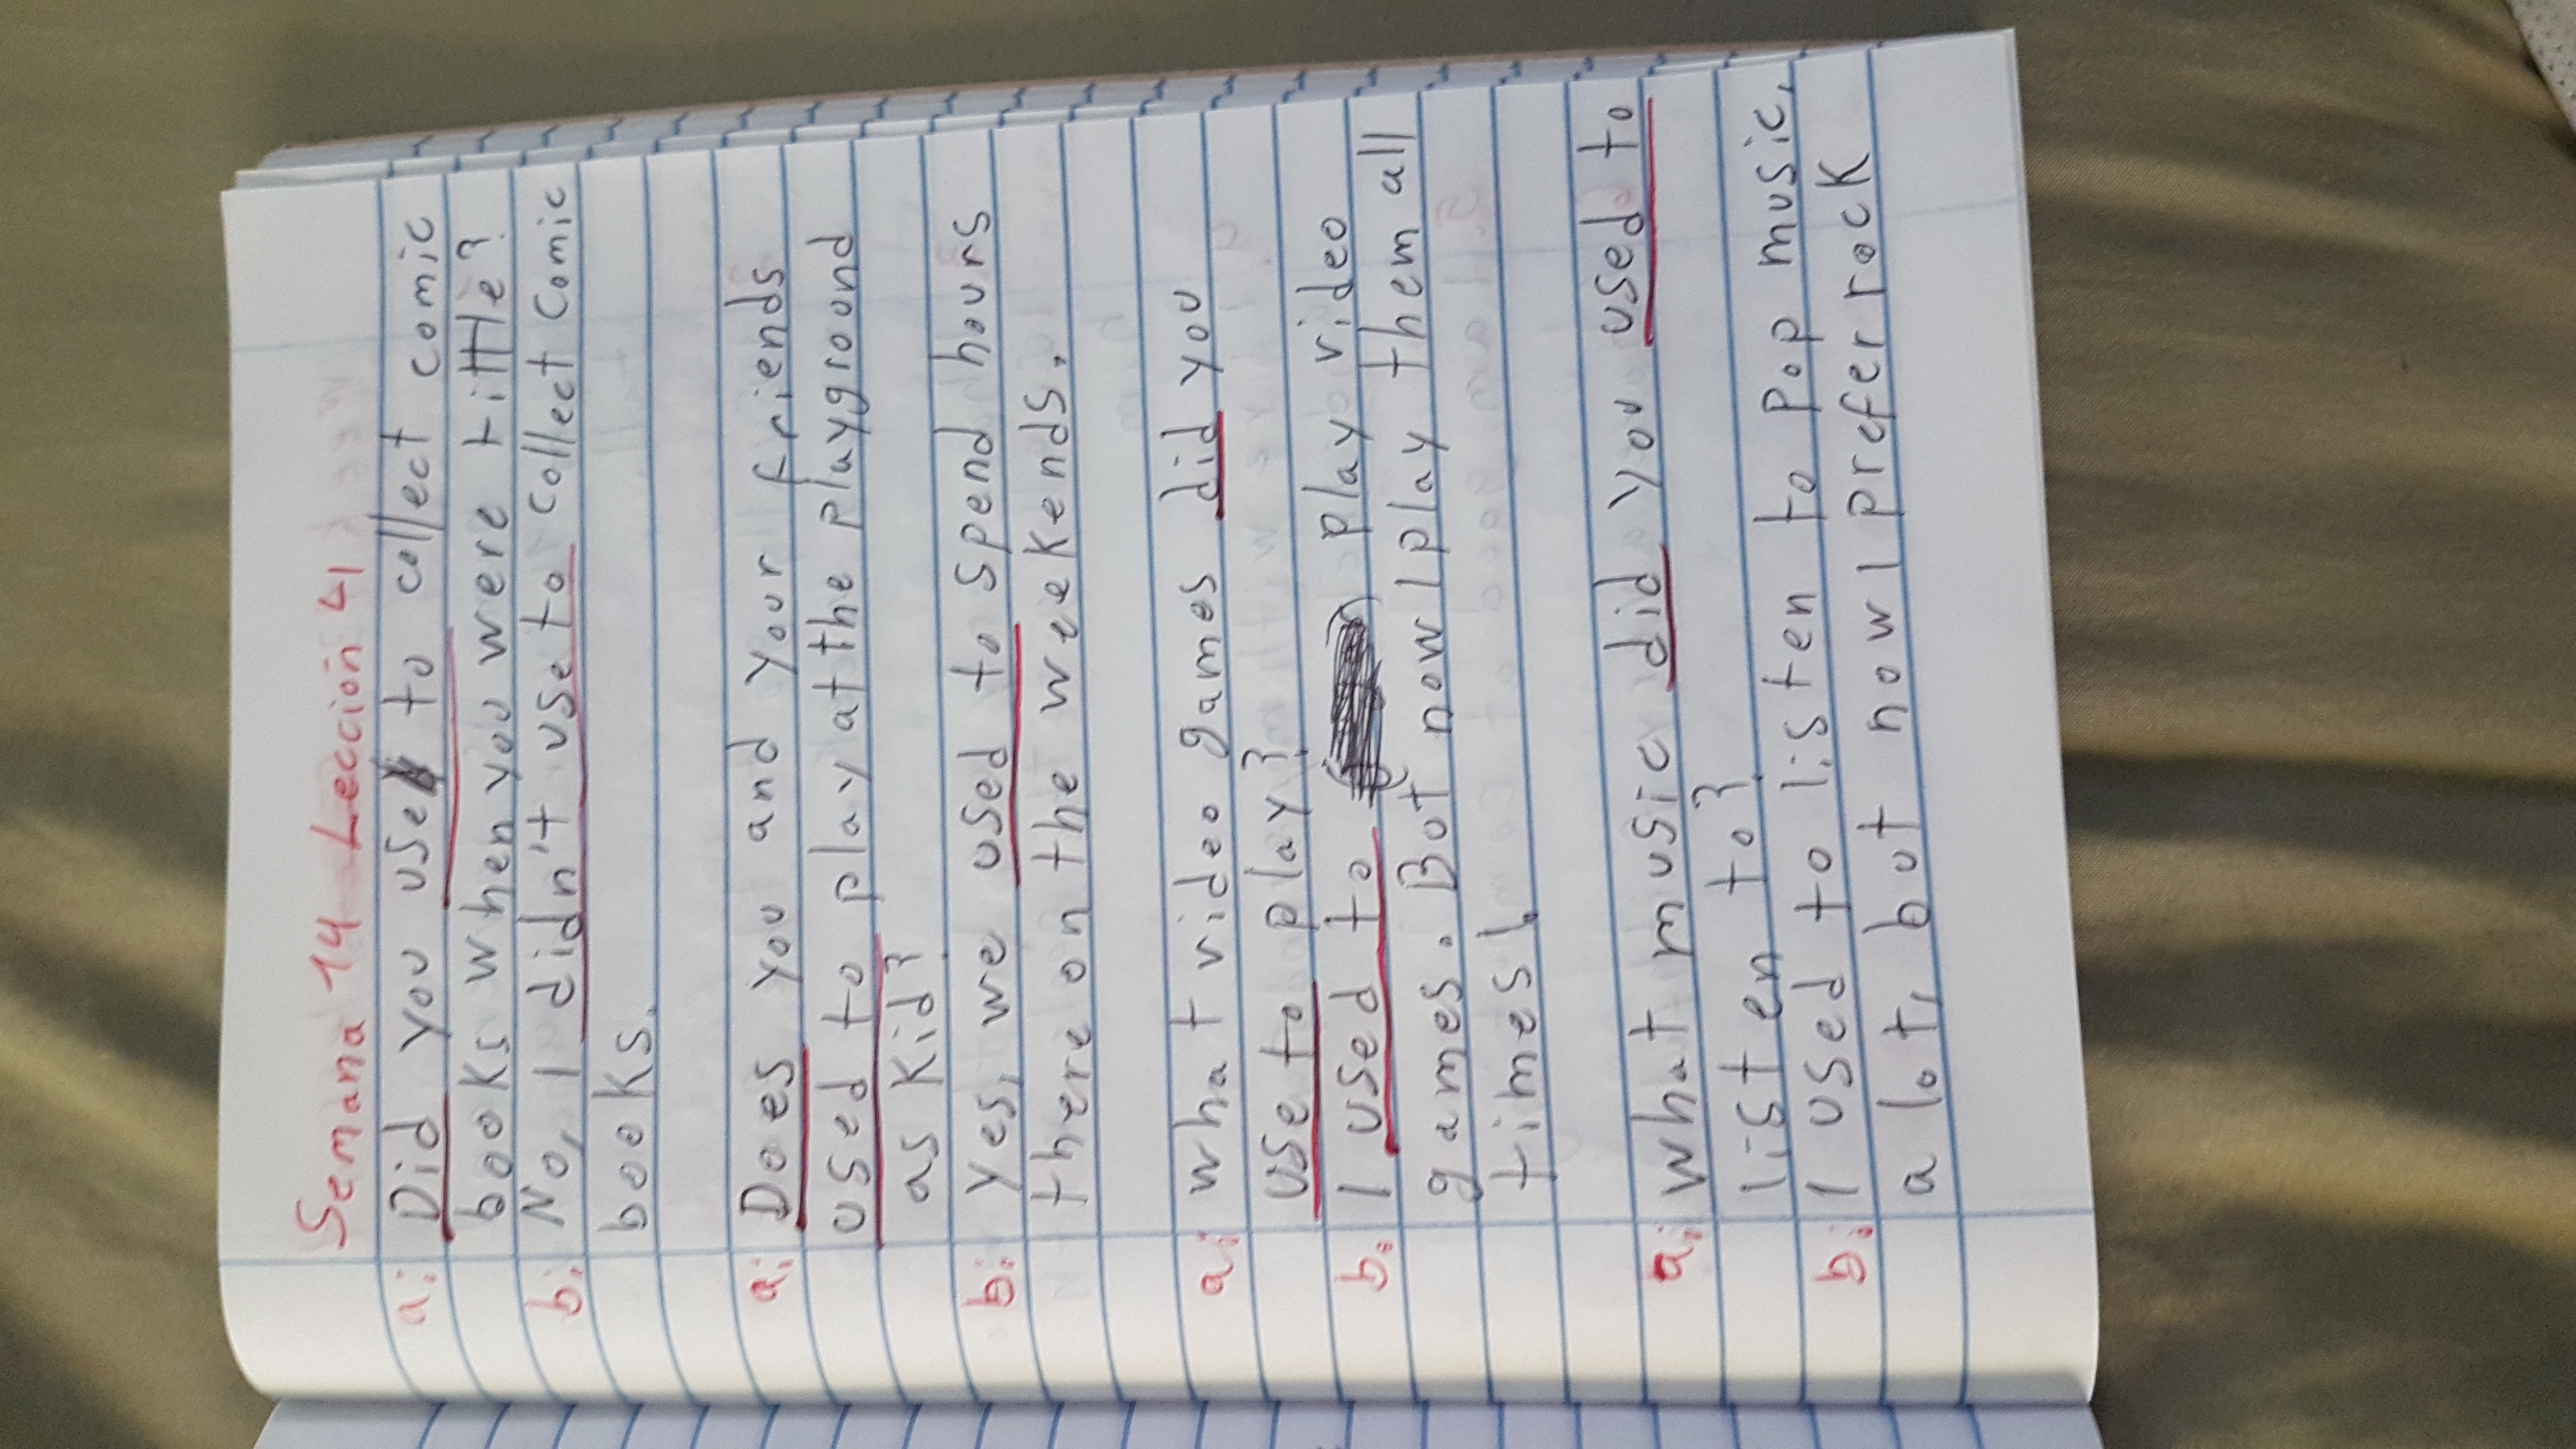 Semana 14 Lección 4
a: Did you use to collect comic
books when you were tittle?
b: No, I didn't use to collect comic
books.
a: Does you and your friends
used to play at the playground
as kid?
b: Yes, we used to spend hours
there on the weekends.
a: what video games did you
use to play?
b: I used to play video
games. But now I play them all
times!
a: what music did you used to
listen to?
b: I used to listen to Pop music,
a lot, but now I prefer rock